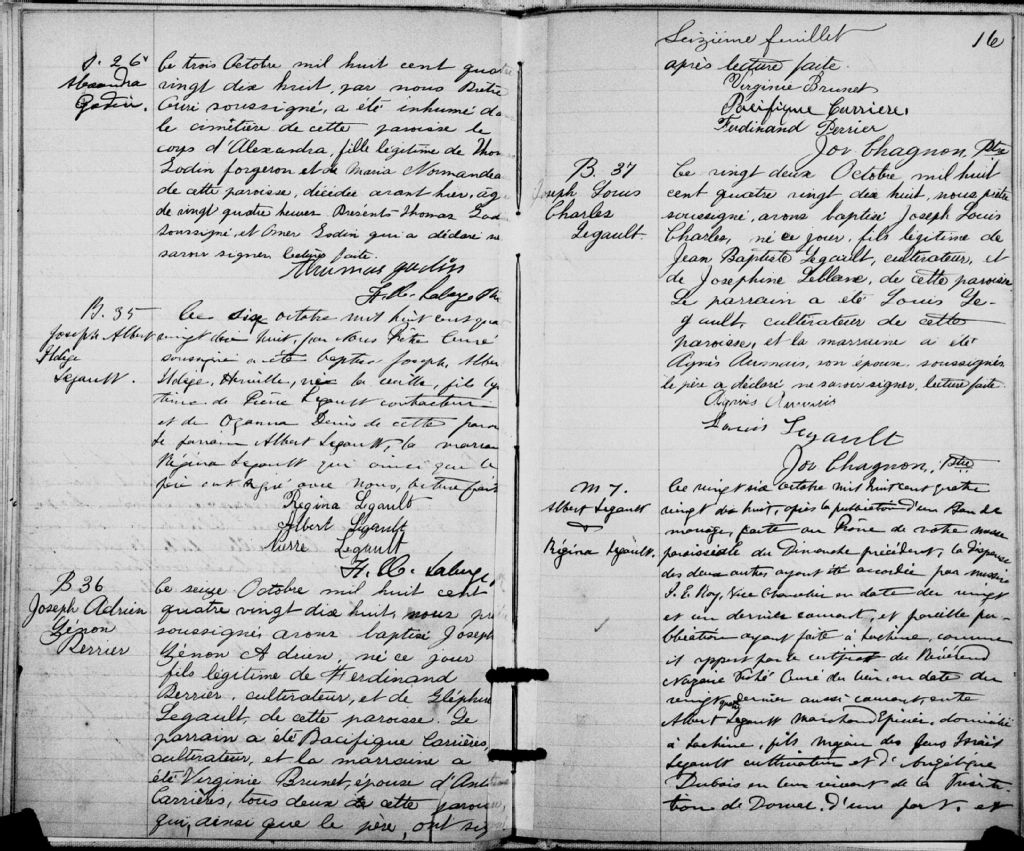 S. 26
Alexandra
Godin.
Ce trois Octobre mil huit cent quatre
vingt dix huit, par nous Prêtre
Curé soussigné, a été inhumé da
le cimétière de cette paroisse le
corps d'Alexandra, fille légitime de Thom
Godin forgeron et de Maria Normandea
de cette paroisse, décédée avant hier, ag
de vingt quatre heures. Présents Thomas God
soussigné, et Omer Godin qui a déclaré ne
savoir signer. Lecture faite.
Thumas godin
B. 35
Joseph Albert
Legault.
Ce six octobre mil huit cent qua
vingt dix huit, par Nous Prêtre Curé
soussigné a été baptisé Joseph, Alber
né la veille, fils lég
time de Pierre Legault contracteur
et de Ozanna Denis de cette paroi
Le parrain Albert Legault, la marrai
Régina Legault qui ainsi que le
père ont signé avec nous, lecture faite
Régina Legault
Albert Legault
Pierre Legault
B 36
Joseph Adrien
Zénon
Perrier
Ce seize Octobre mil huit cent
quatre vingt dix huit, nous prê
soussigné, avons baptisé Joseph
Zénon Adrien, né ce jour
fils légitime de Ferdinand
Perrier, cultivateur, et de Zléphire
Legault, de cette paroisse. Le
parrain a été Pacifique Carrières,
cultivateur, et la marraine a
été Virginie Brunet, épouse d'Ant
Carrières, tous deux de cette paroisse,
qui, ainsi que le père, ont sig
Seizième feuillet
16
après lecture faite.
Virginie Brunet
Pacifique Carriere
Ferdinand Perrier
Jos Chagnon, Ptre
B. 37
Joseph Louis
Charles
Legault.
Ce vingt deux Octobre mil huit
cent quatre vingt dix huit, nous prêtre
soussigné, avons baptisé Joseph Louis
Charles, né ce jour, fils légitime de
Jean Baptiste Legault, cultivateur, et
de Josephine Leblanc, de cette paroisse
Le parrain a été Louis Le-
gault, cultivateur de cette
paroisse, et la marraine a été
Agnès son épouse, soussignés
le père a déclaré ne savoir signer, lecture faite.
Agnès
Louis Legault
Jos Chagnon, Ptre
M 7.
Albert Legault
&
Régina Legault.
Ce vingt six octobre mil huit cent quatre
vingt dix huit, après la publication d'un Ban de
mariage, faite au Prône de notre messe
paroissiale du Dimanche précédent, la dispense
des deux autres ayant été accordée par
J. E. Roy, Vice Chancelier en date du vingt
et un dernier courant, et pareille pu-
blication ayant faite à Lachine, comme
il appert par le certificat du Révérend
Nazaire Piché Curé du lieu, en date du
vingt quatre dernier aussi courant, entre
Albert Legault Marchand Epicier, domicilié
à Lachine, fils majeur des feus
Legault cultivateur et d'Angélique
Dubois en leur vivant de la Présenta-
tion de Dorval, d'une part, et